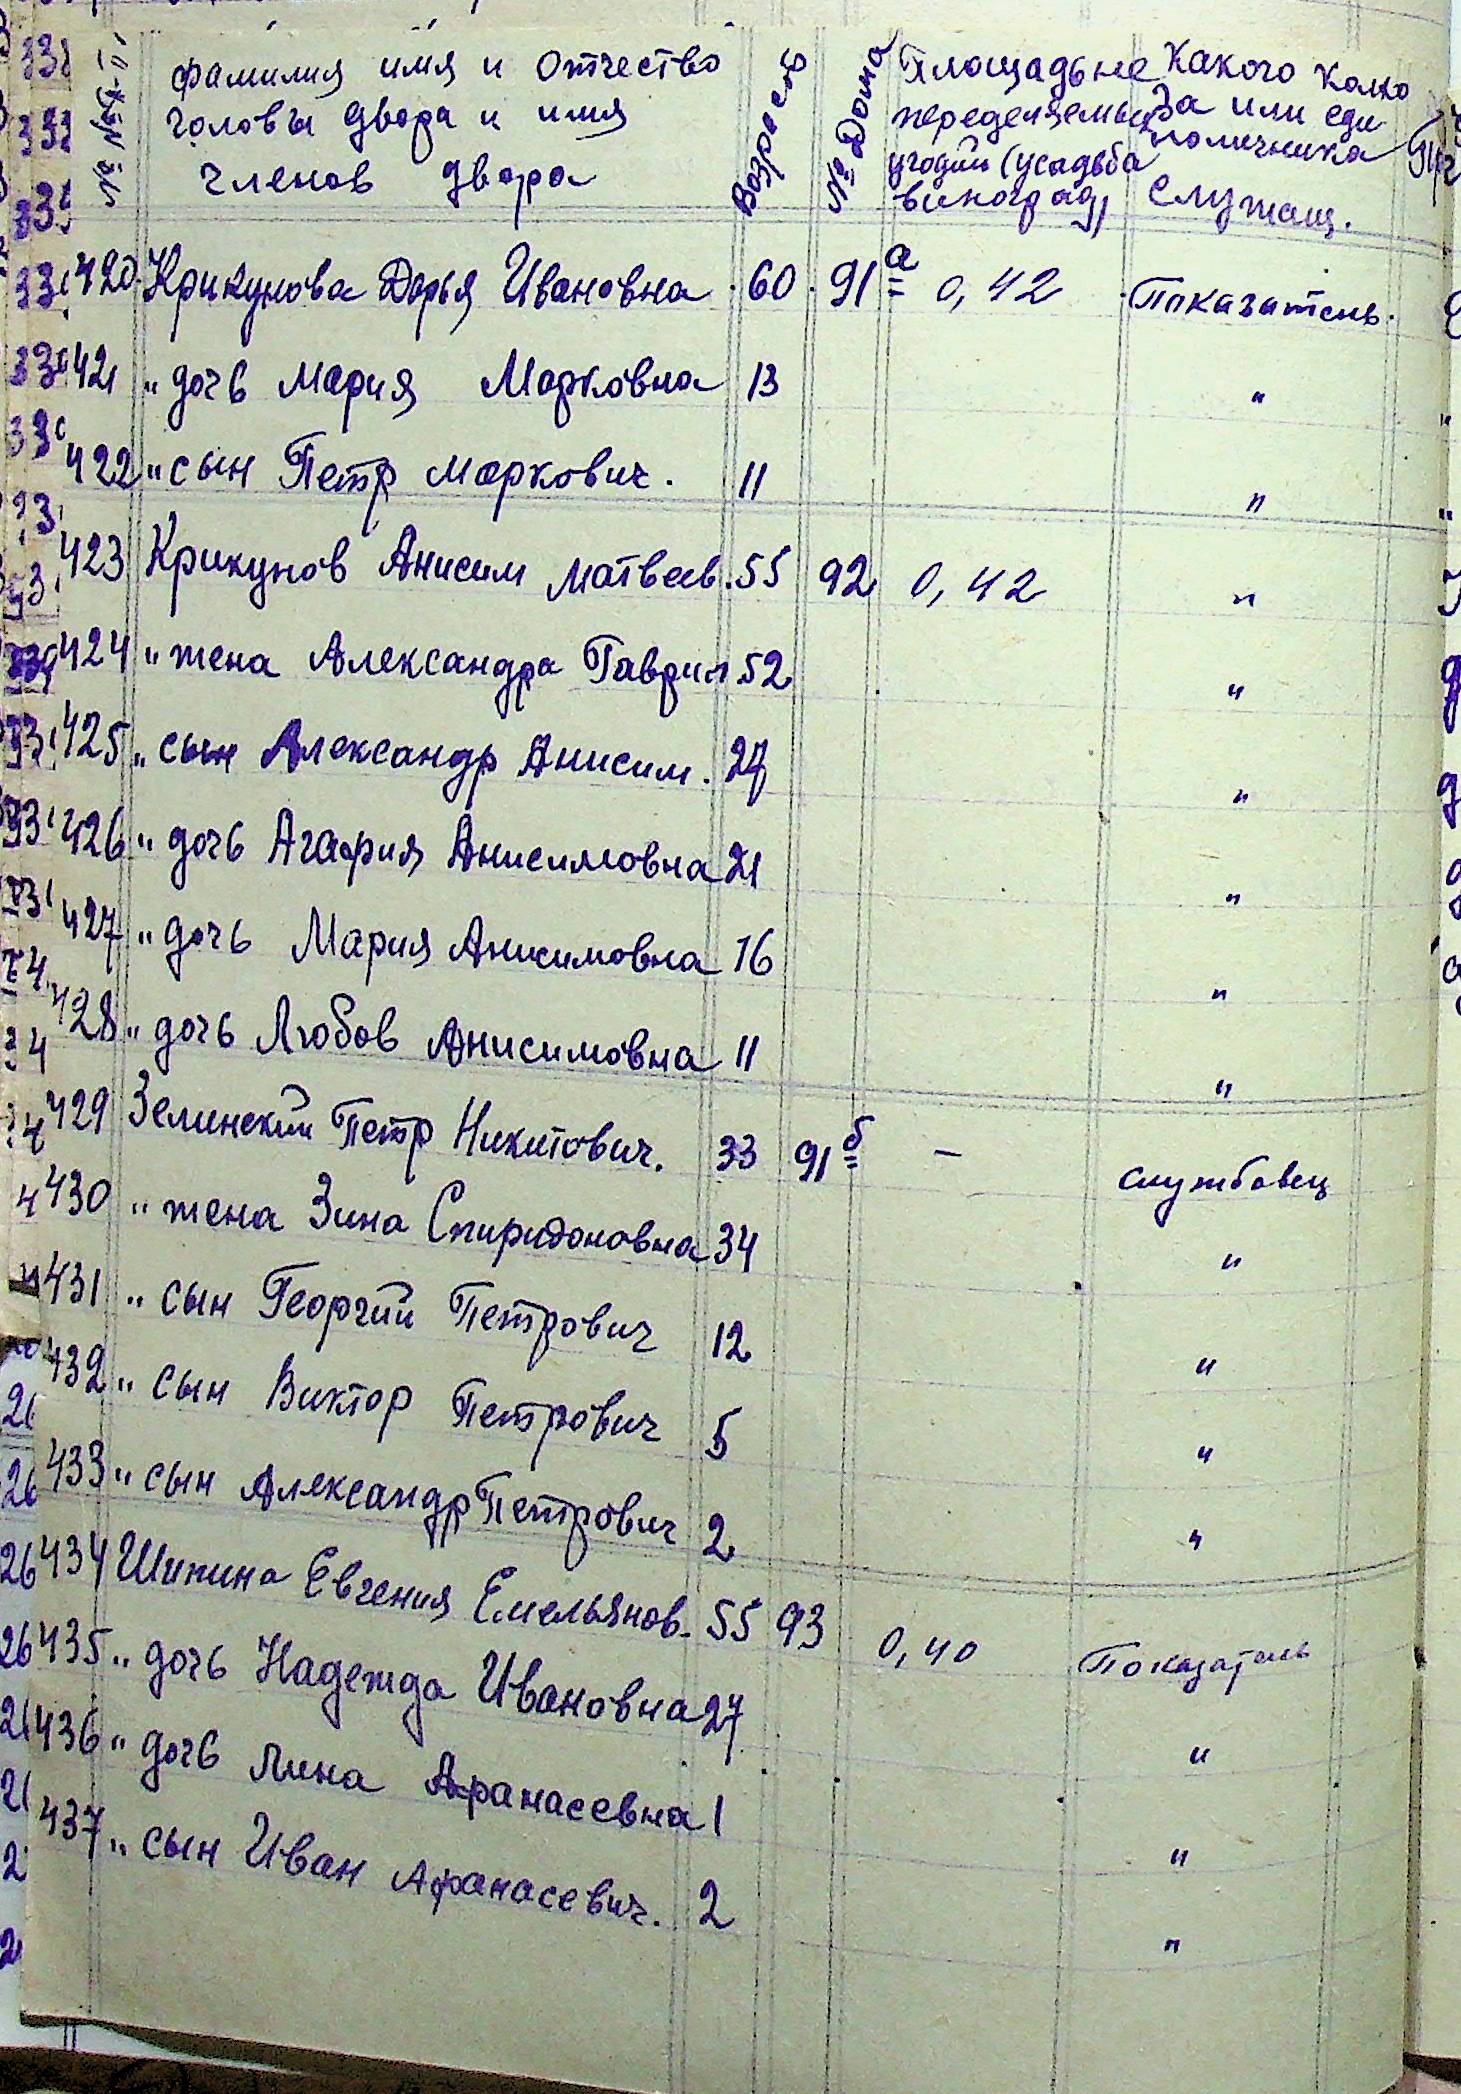 фамилия имя и отчество
головы двора и имя
членов двора
Возрость
№ Дома
Площадь не
переделяемых
угодий (усадьба
виноград)
Какого колхо
за или еди
ноличника
Служащ.
420. Крикунова Дарья Ивановна 60 91а 0,42 Показатель.
421 " дочь Мария Марковна 13 "
422 " сын Петр Маркович. 11 "
423 Крикунов Анисим Матвеев. 55 92 0,42 "
424 " жена Александра Гаврил 52 "
425 " сын Александр Анисим. 27 "
426 " дочь Агафия Анисимовна 21 "
427 " дочь Мария Анисимовна 16 "
428 " дочь Любов Анисимовна 11 "
429 Зелинский Петр Никитович. 33 91б — службовец
430 " жена Зина Спиридоновна 34 "
431 " сын Георгий Петрович 12 "
432 " сын Виктор Петрович 5 "
433 " сын Александр Петрович 2 "
434 Шипина Евгения Емельянов. 55 93 0,40 Показатель
435 " дочь Надежда Ивановна 27 "
436 " дочь Лина Афанасевна 1 "
437 " сын Иван Афанасевич. 2 "